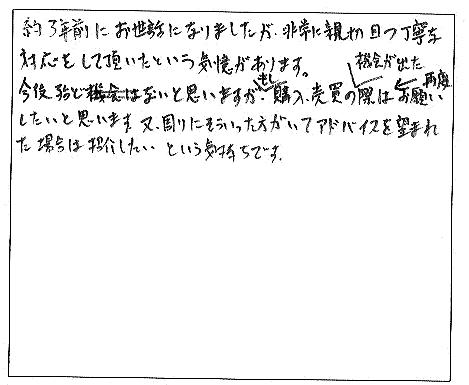 約3年前に お世話になりましたが、非常に親切且つ丁寧な
対応をして頂いたという気憶があります。
機会が出た
もし 再度
今後殆ど機会はないと思いますが、購入、売買の際はお願い
したいと思います。又、周りにそういった方がいてアドバイスを望まれ
た場合は紹介したい という気持ちです。